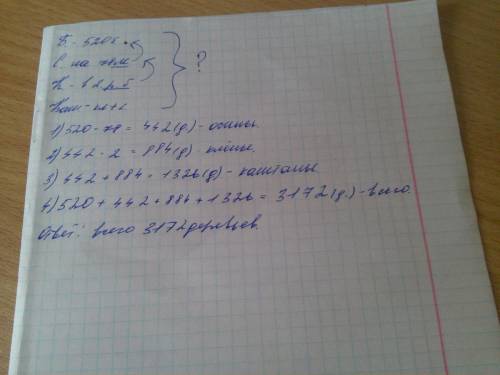 Б - 520 б.
О. на 78 м ?
К - в 2 р. б
Кашт - кл + о
1) 520 - 78 = 442 (д) - осины.
2) 442 · 2 = 884 (д) - клёны.
3) 442 + 884 = 1326 (д) - каштаны.
4) 520 + 442 + 884 + 1326 = 3172 (д.) - всего.
Ответ: всего 3172 деревьев.